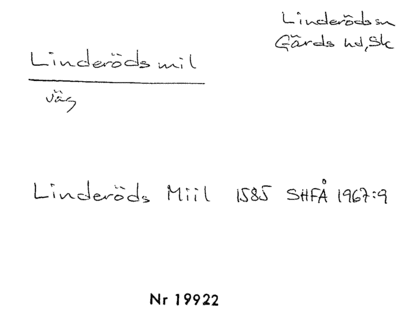 Linderöds sn
Gärds hd, Sk
Linderödsmil
väg
Linderöds Miil 1585 SHFÅ 1967:9
Nr 19922